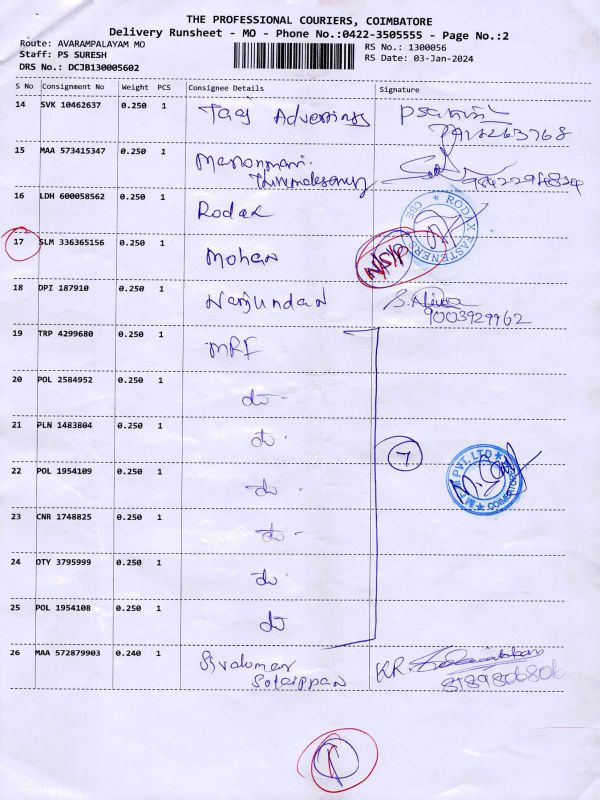 THE PROFESSIONAL COURIERS, COIMBATORE
Delivery Runsheet - MO - Phone No.:0422-3505555 - Page No.:2
Route: AVARAMPALAYAM MO
Staff: PS SURESH
DRS No.: DCJB130005602
RS No.: 1300056
RS Date: 03-Jan-2024
S No Consignment No Weight PCS Consignee Details Signature
14 SVK 10462637 0.250 1 Taaj
15 MAA 573415347 0.250 1
16 LDH 600058562 0.250 1 Rodax
RODAX FASTENERS CBE
17 SLM 336365156 0.250 1 Mohan N/S/P
18 DPI 187910 0.250 1 Nanjundan
9003929962
19 TRP 4299680 0.250 1 MRF
20 POL 2584952 0.250 1 do -
21 PLN 1483804 0.250 1 do -
7
22 POL 1954109 0.250 1 do -
PVT. LTD
COIMBATORE
23 CNR 1748825 0.250 1 do -
24 OTY 3795999 0.250 1 do -
25 POL 1954108 0.250 1 do
26 MAA 572879903 0.240 1 KR.
8189806806
1